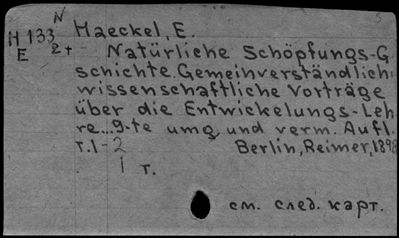 N
H 133 Haeckel, E.
E 2+ Natürliche Schöpfungs-G
schichte. Gemeinverständlich
wissenschaftliche Vorträge
über die Entwickelungs-Leh
re...9-te umg. und verm. Aufl.
т.1-2 Berlin, Reimer, 1898
1 т.
см. след. карт.